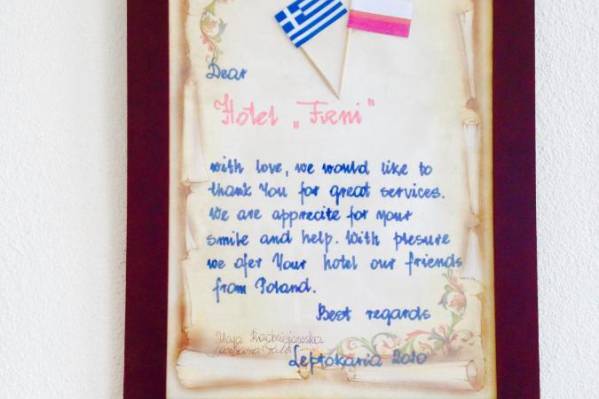 Dear
Hotel „Fæni"
with love, we would like to
thank You for great services.
We are apprecite for your
smile and help. With plesure
we ofer Your hotel our friends
from Poland.
Best regards
Maja
Leptokaria 2010